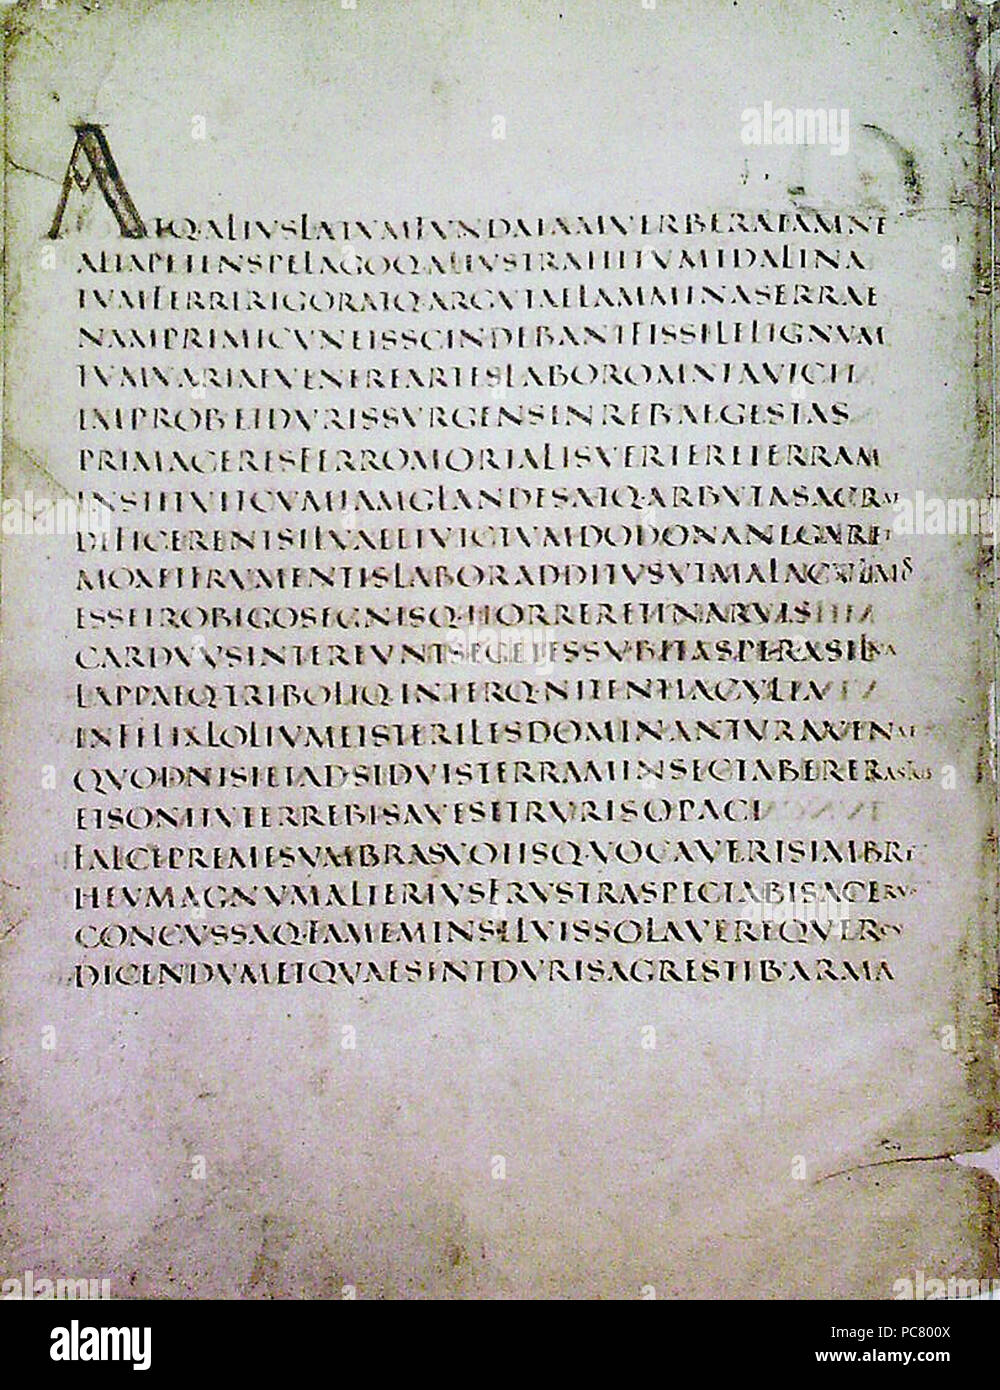 ATQ·ALIVSLATVMFVNDAIAMVERBERATAMNE
ALTAPETENSPELAGOQ·ALIVSTRAHITVMIDALINA
TVMFERRIRIGORATQ·ARGVTAELAMMINASERRAE
NAMPRIMICVNEISSCINDEBANTFISSILELIGNVM
TVMVARIAEVENEREARTESLABOROMNIAVICIT
IMPROB·ETDVRISSVRGENSINREB·AEGESTAS
PRIMACERESFERROMORTALISVERTERETERRAM
INSTITVITCVMIAMGLANDESATQ·ARBVTASACRAE
DEFICERENTSILVAEETVICTVMDODONANEGARET
MOXETFRVMENTISLABORADDITVSVTMALACVLMOS
ESSETROBIGOSEGNISQ·HORRERETINARVIS
CARDVVSINTEREVNTSEGETESSVBITASPERASILVA
LAPPAEQ·TRIBOLIQ·INTERQ·NITENTIACVLTA
INFELIXLOLIVMETSTERILESDOMINANTVRAVENAE
QVODNISIETADSIDVISTERRAMINSECTABERERASTRIS
ETSONITVTERREBISAVESETRVRISOPACI
FALCEPREMESVMBRASVOTISQ·VOCAVERISIMBRE
HEVMAGNVMALTERIVSFRVSTRASPECTABISACERVO
CONCVSSAQ·FAMEMINSILVISSOLAVEREQVERCV
DICENDVMETQVAESINTDVRISAGRESTIB·ARMA
alamy
Image ID: PC800X
www.alamy.com